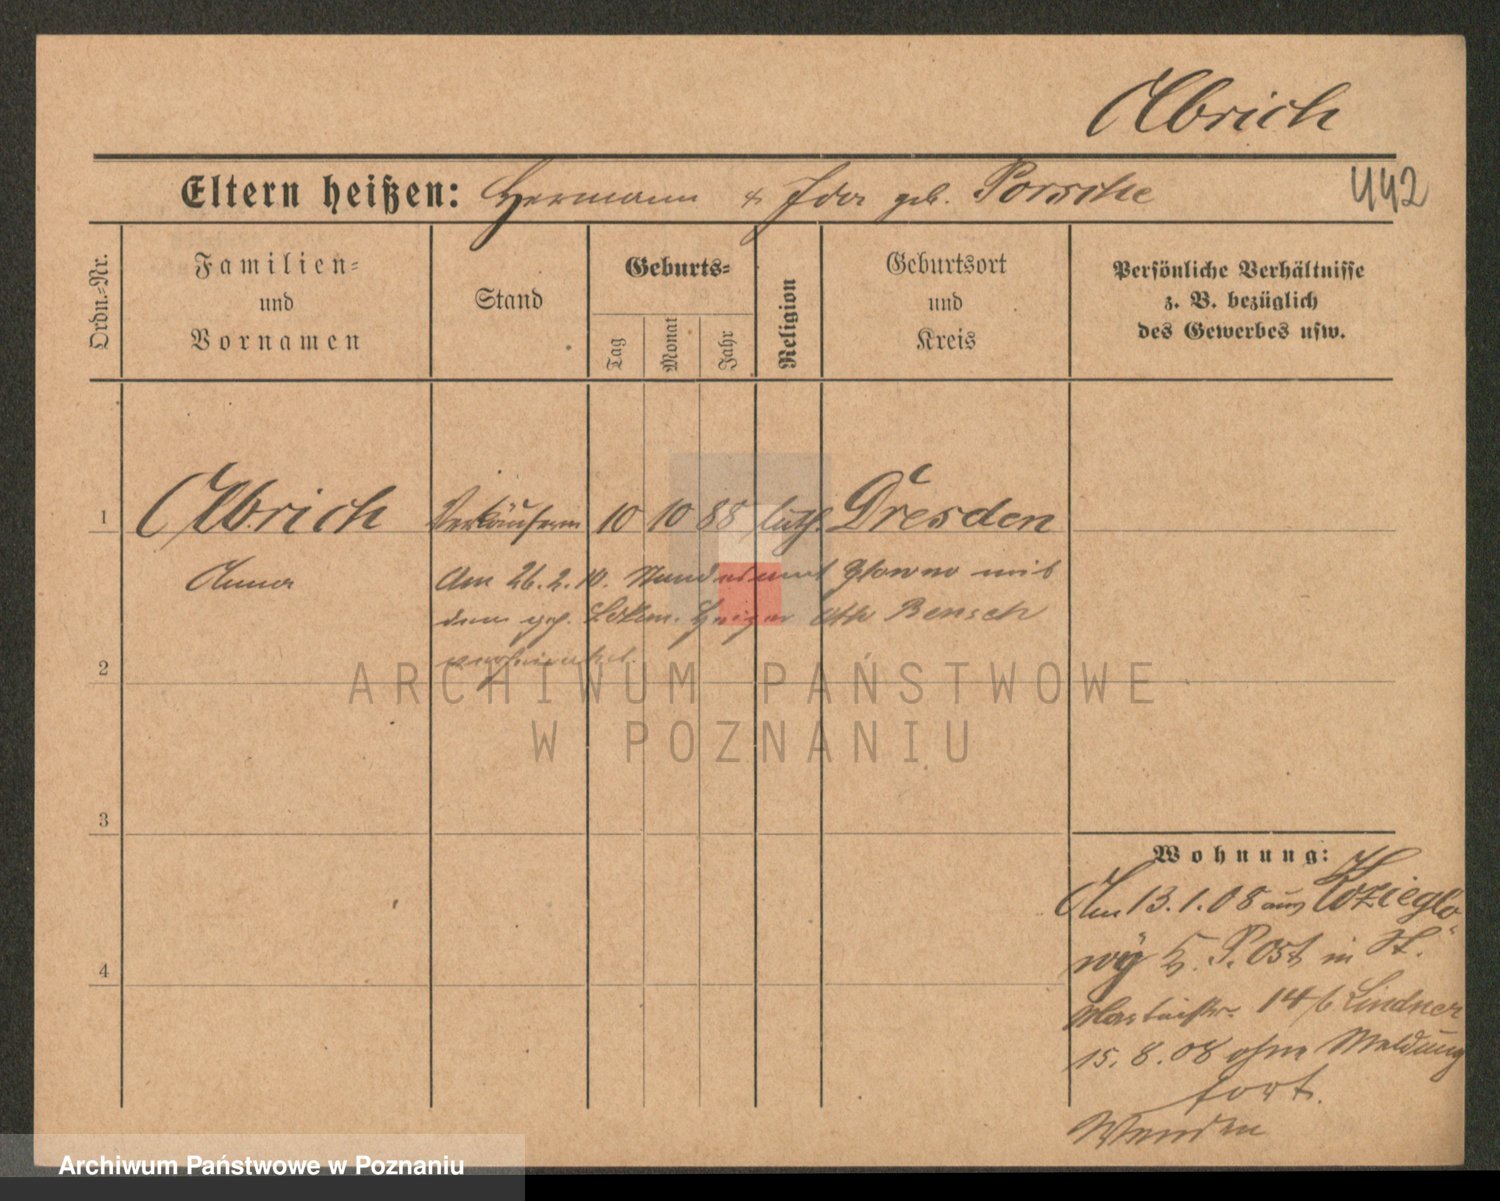 Olbrich
Eltern heißen: Hermann & Ida geb. Porsche
442
Ordn.-Nr.
Familien-
und
Vornamen
Stand
Geburts-
Tag
Monat
Jahr
Religion
Geburtsort
und
Kreis
Persönliche Verhältnisse
z. B. bezüglich
des Gewerbes usw.
1
Olbrich Verkäuferin 10 10 88 luth. Dresden
Anna
Am 26.2.10. Standesamt Glowno mit
dem gep. Lokm. Heizer Otto Bensch
verheiratet.
2
3
4
Wohnung:
Am 13.1.08 aus Kozieglo
wy K. P. Ost in St.
14 b Lindner
15.8.08 ohne Meldung
fort.
Wenden
ARCHIWUM PAŃSTWOWE
W POZNANIU
Archiwum Państwowe w Poznaniu